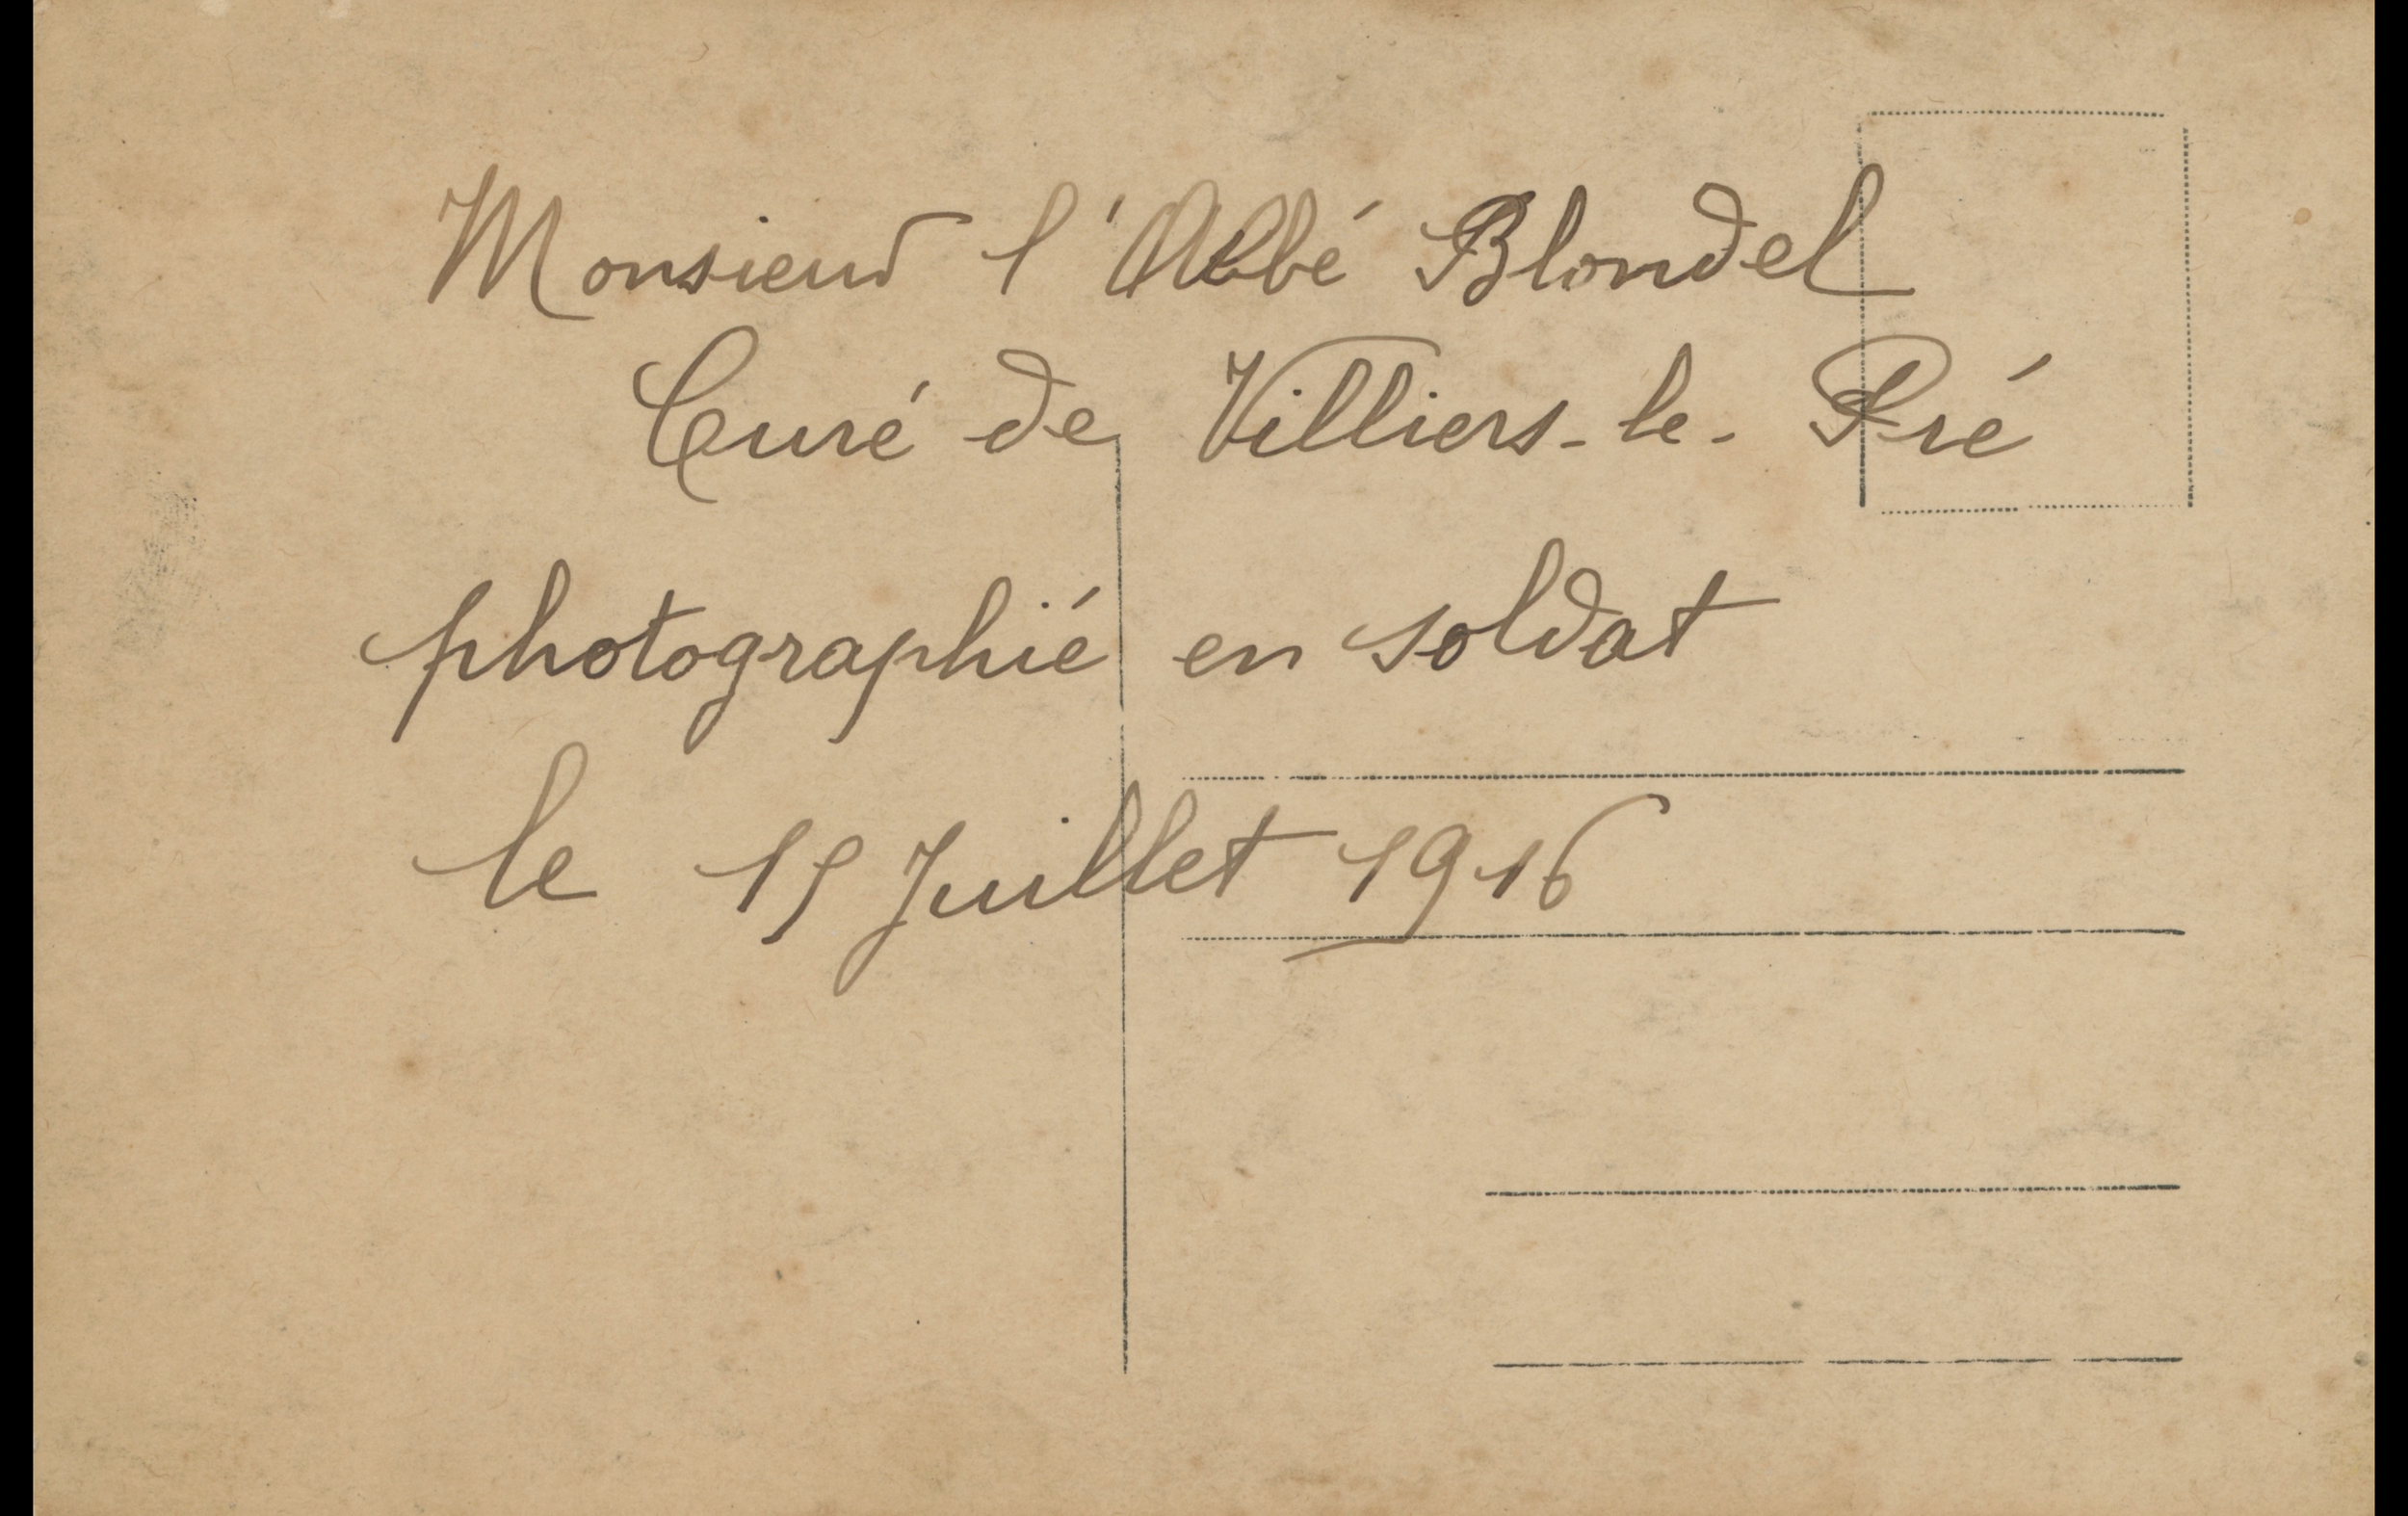 Monsieur l'Abbé Blondel
Curé de Villiers-le-Pré
photographié en soldat
le 15 Juillet 1916